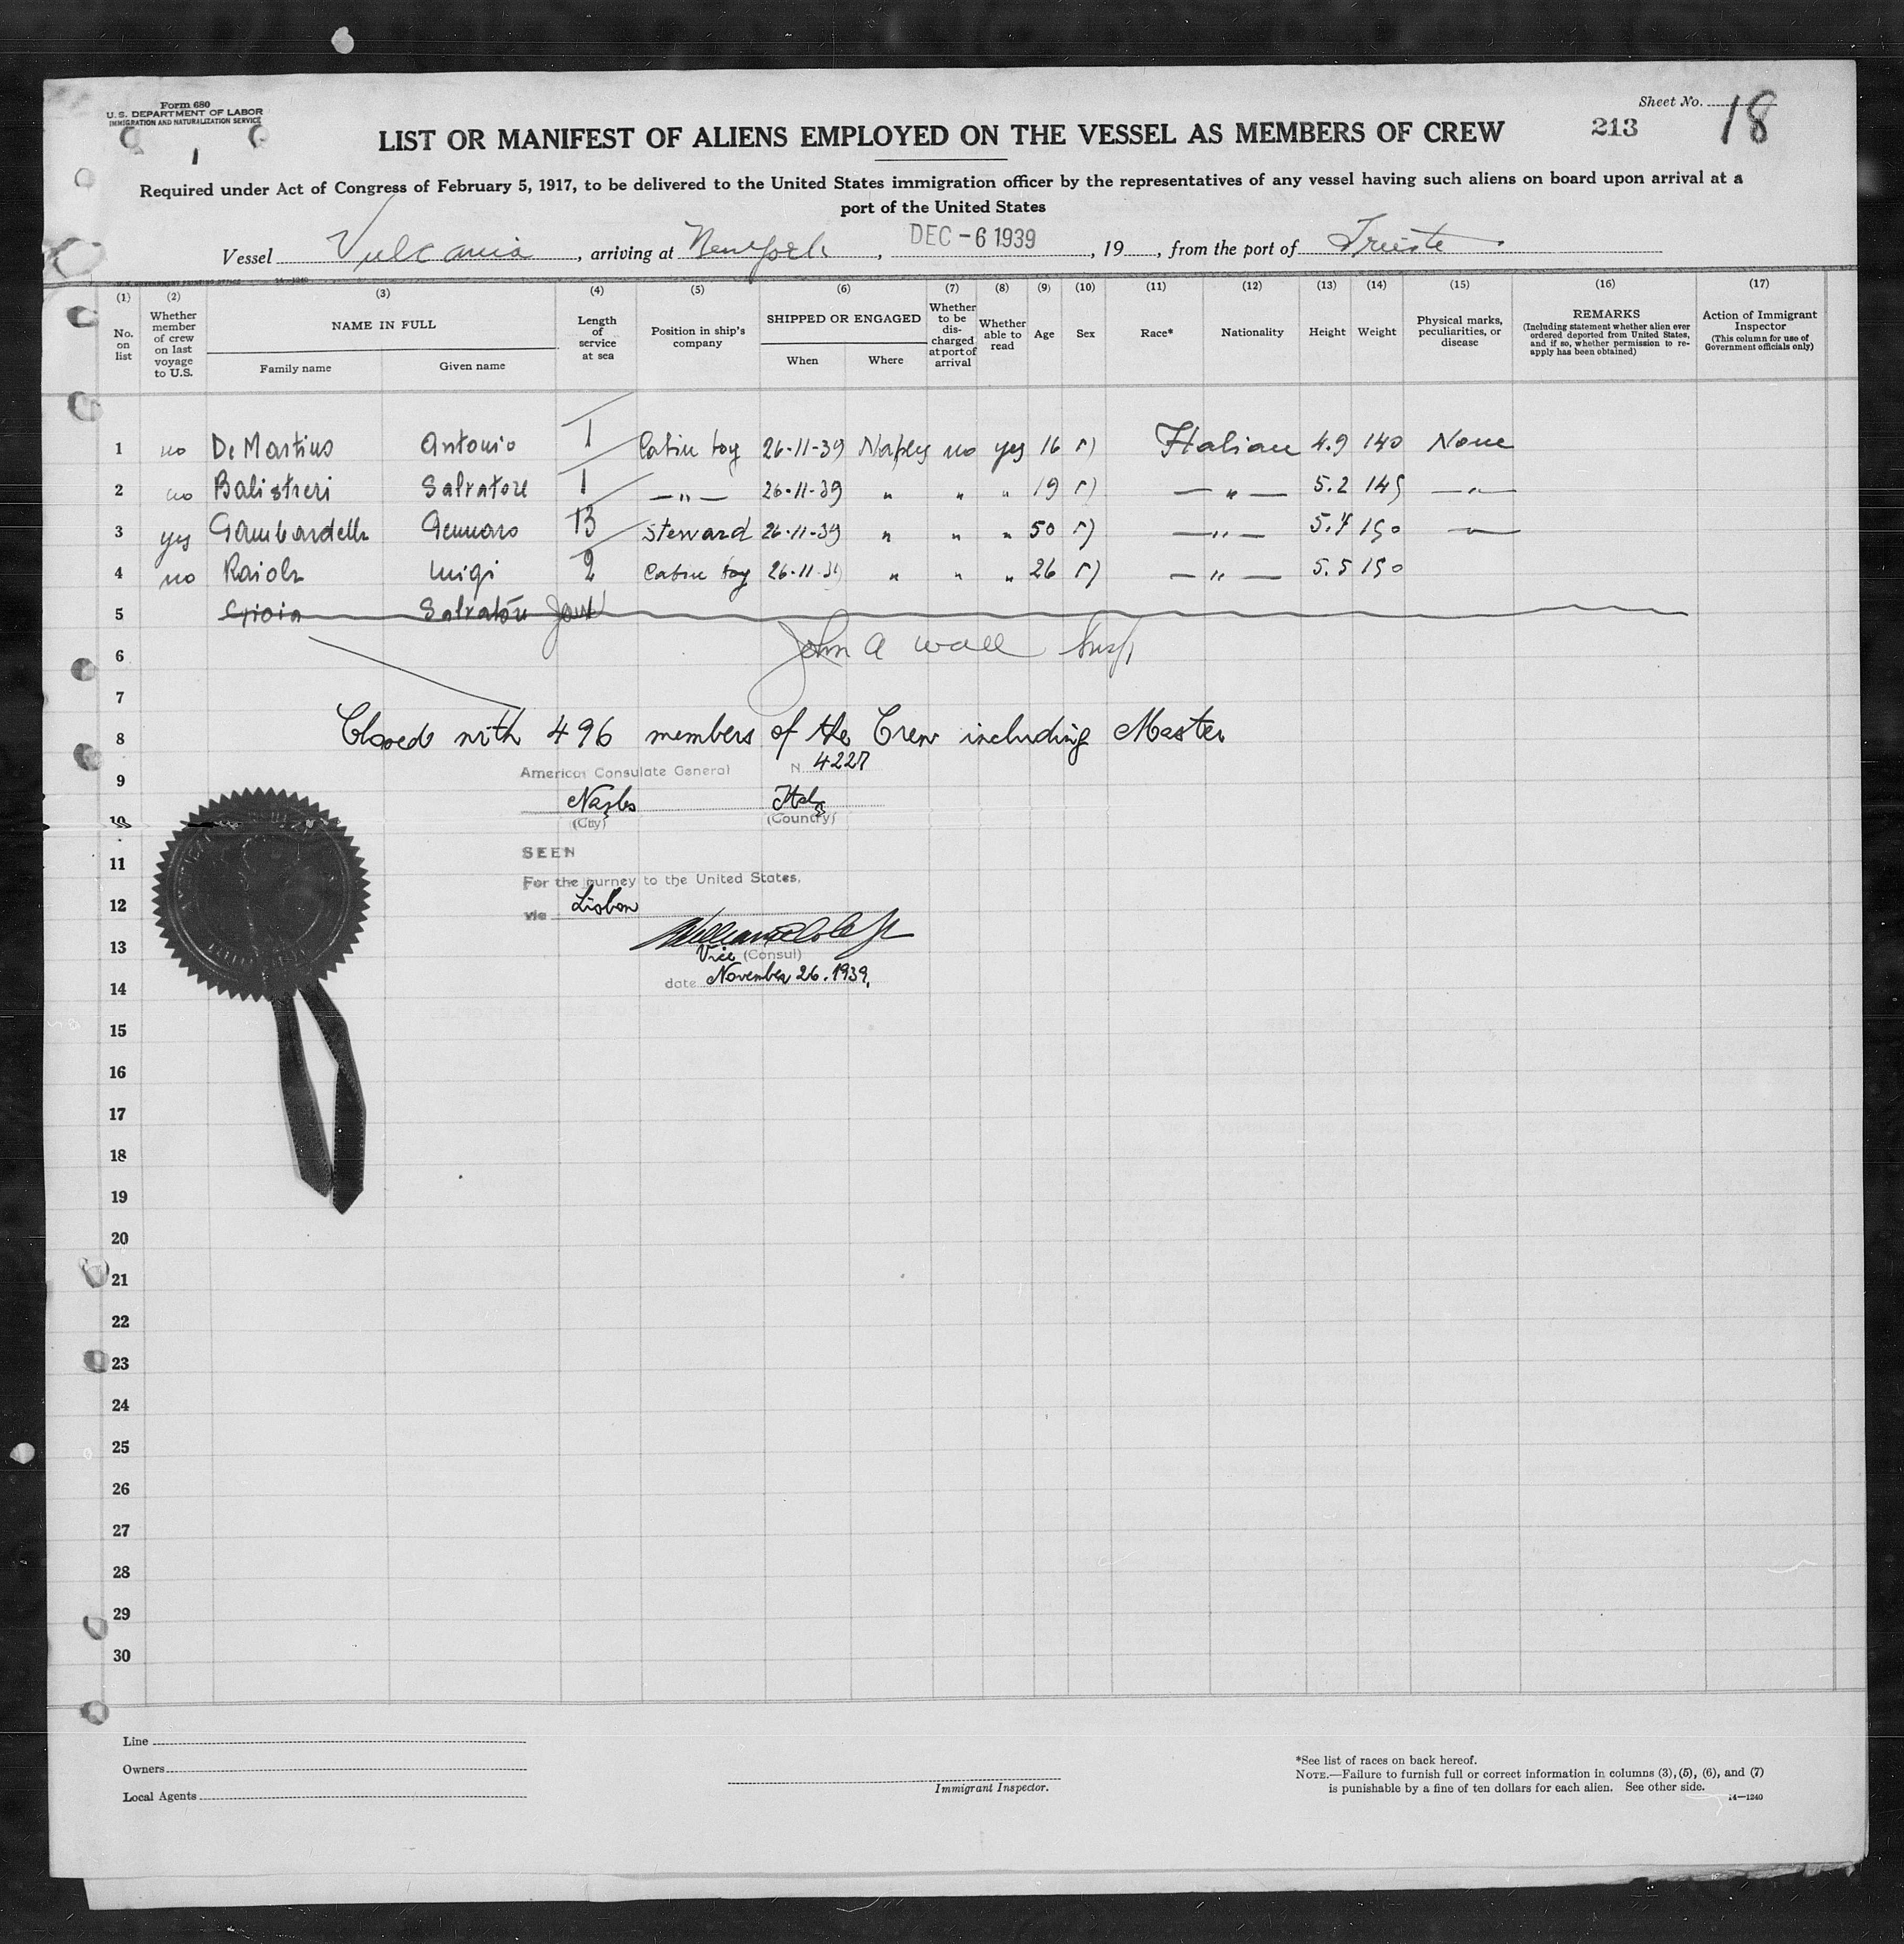 Form 680
U. S. DEPARTMENT OF LABOR
IMMIGRATION AND NATURALIZATION SERVICE
Sheet No. 18
213
LIST OR MANIFEST OF ALIENS EMPLOYED ON THE VESSEL AS MEMBERS OF CREW
Required under Act of Congress of February 5, 1917, to be delivered to the United States immigration officer by the representatives of any vessel having such aliens on board upon arrival at a
port of the United States
Vessel Vulcania, arriving at New York, DEC -6 1939, 19, from the port of Trieste
(1) (2) (3) (4) (5) (6) (7) (8) (9) (10) (11) (12) (13) (14) (15) (16) (17)
No. on list
Whether member of crew on last voyage to U.S.
NAME IN FULL
Family name
Given name
Length of service at sea
Position in ship's company
SHIPPED OR ENGAGED
When
Where
Whether to be discharged at port of arrival
Whether able to read
Age
Sex
Race*
Nationality
Height
Weight
Physical marks, peculiarities, or disease
REMARKS
(Including statement whether alien ever ordered deported from United States, and if so, whether permission to reapply has been obtained)
Action of Immigrant Inspector
(This column for use of Government officials only)
1 no De Martino Antonio 1 Cabin boy 26-11-39 Naples no yes 16 Italian 4.9 140 None
2 no Balistreri Salvatore 1 — " — 26-11-39 " " " 19 — " — 5.2 145 — " —
3 yes Gambardella Gennaro 13 Steward 26-11-39 " " " 50 — " — 5.4 150 — " —
4 no Raiola Luigi 2 Cabin boy 26-11-39 " " " 26 — " — 5.5 150
5 Gioia Salvatore
6 John A Wall
7
8 Closed with 496 members of the Crew including Master
American Consulate General N. 4227
9
Naples Italy
10
(City) (Country)
SEEN
11
For the journey to the United States,
12
via Lisbon
13
Vice (Consul)
date November 26. 1939,
14
15
16
17
18
19
20
21
22
23
24
25
26
27
28
29
30
Line
Owners
Local Agents
Immigrant Inspector.
*See list of races on back hereof.
NOTE.—Failure to furnish full or correct information in columns (3), (5), (6), and (7)
is punishable by a fine of ten dollars for each alien. See other side.
14—1240